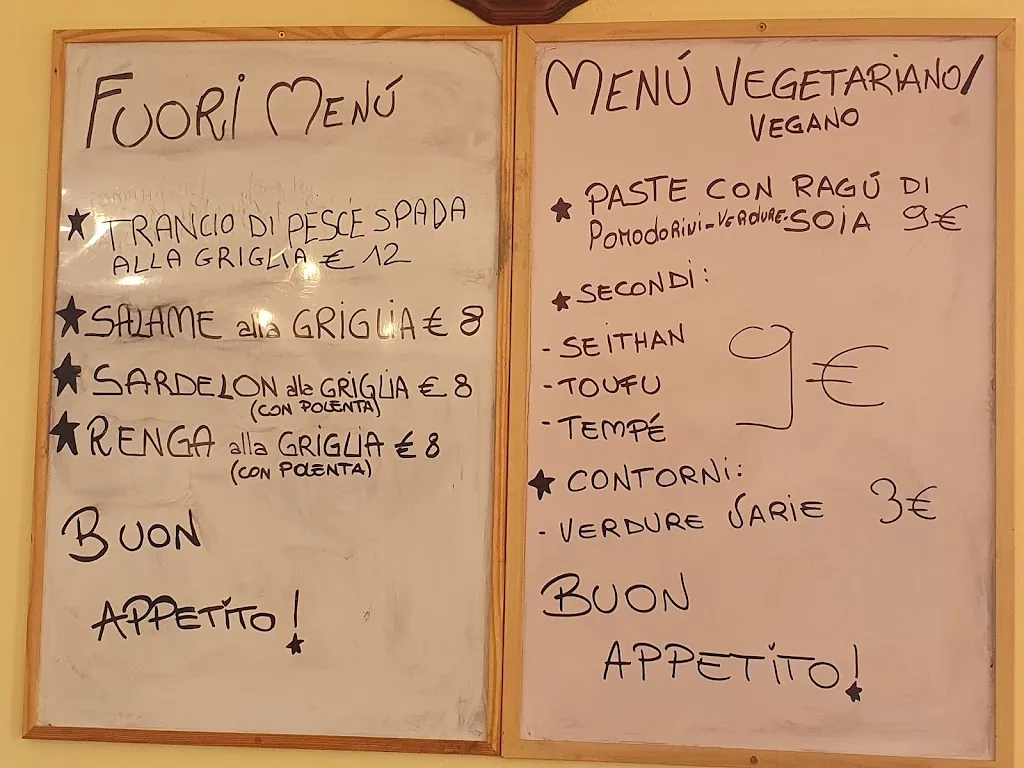 FUORI MENÚ
★ TRANCIO DI PESCE SPADA
ALLA GRIGLIA € 12
★ SALAME alla GRIGLIA € 8
★ SARDELON alla GRIGLIA € 8
(CON POLENTA)
★ RENGA alla GRIGLIA € 8
(CON POLENTA)
BUON
APPETITO!
MENÚ VEGETARIANO/
VEGANO
★ PASTE CON RAGÚ DI
POMODORINI-VERDURE-SOIA 9€
★ SECONDI:
- SEITHAN
- TOUFU 9€
- TEMPÉ
★ CONTORNI:
- VERDURE VARIE 3€
BUON
APPETITO!